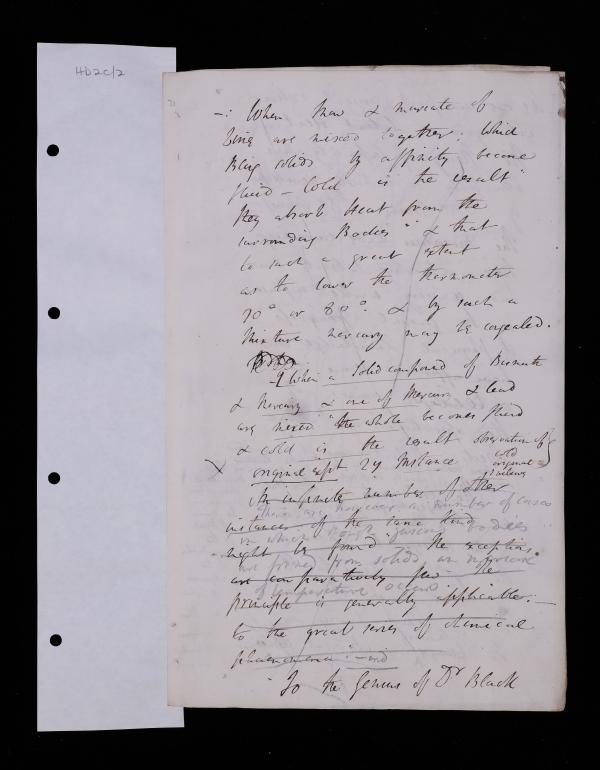 HD2c/2
-: When Snow & muriate of
Lime are mixed together. Which
Being solids by affinity become
fluid - Cold is the result"
they absorb Heat from the
surrounding Bodies" & that
to such a great extent
as to lower the thermometer
70° or 80°. & by such a
Mixture mercury may be congealed.
- When a Solid compound of Bismuth
& Mercury & one of Mercury & lead
are mixed "the whole becomes fluid
& cold is the result observation of
original expt 2d Instance
cold
original
An infinite number of other
There are however a number of cases
instances of the same Kind
in which bodies
might be found" The exceptions
are formed from solids an increase
are comparatively few The
of temperature occurs
principle is generally applicable. -
to the great series of chemical
phaenomena" - and
To the Genius of Dr Black